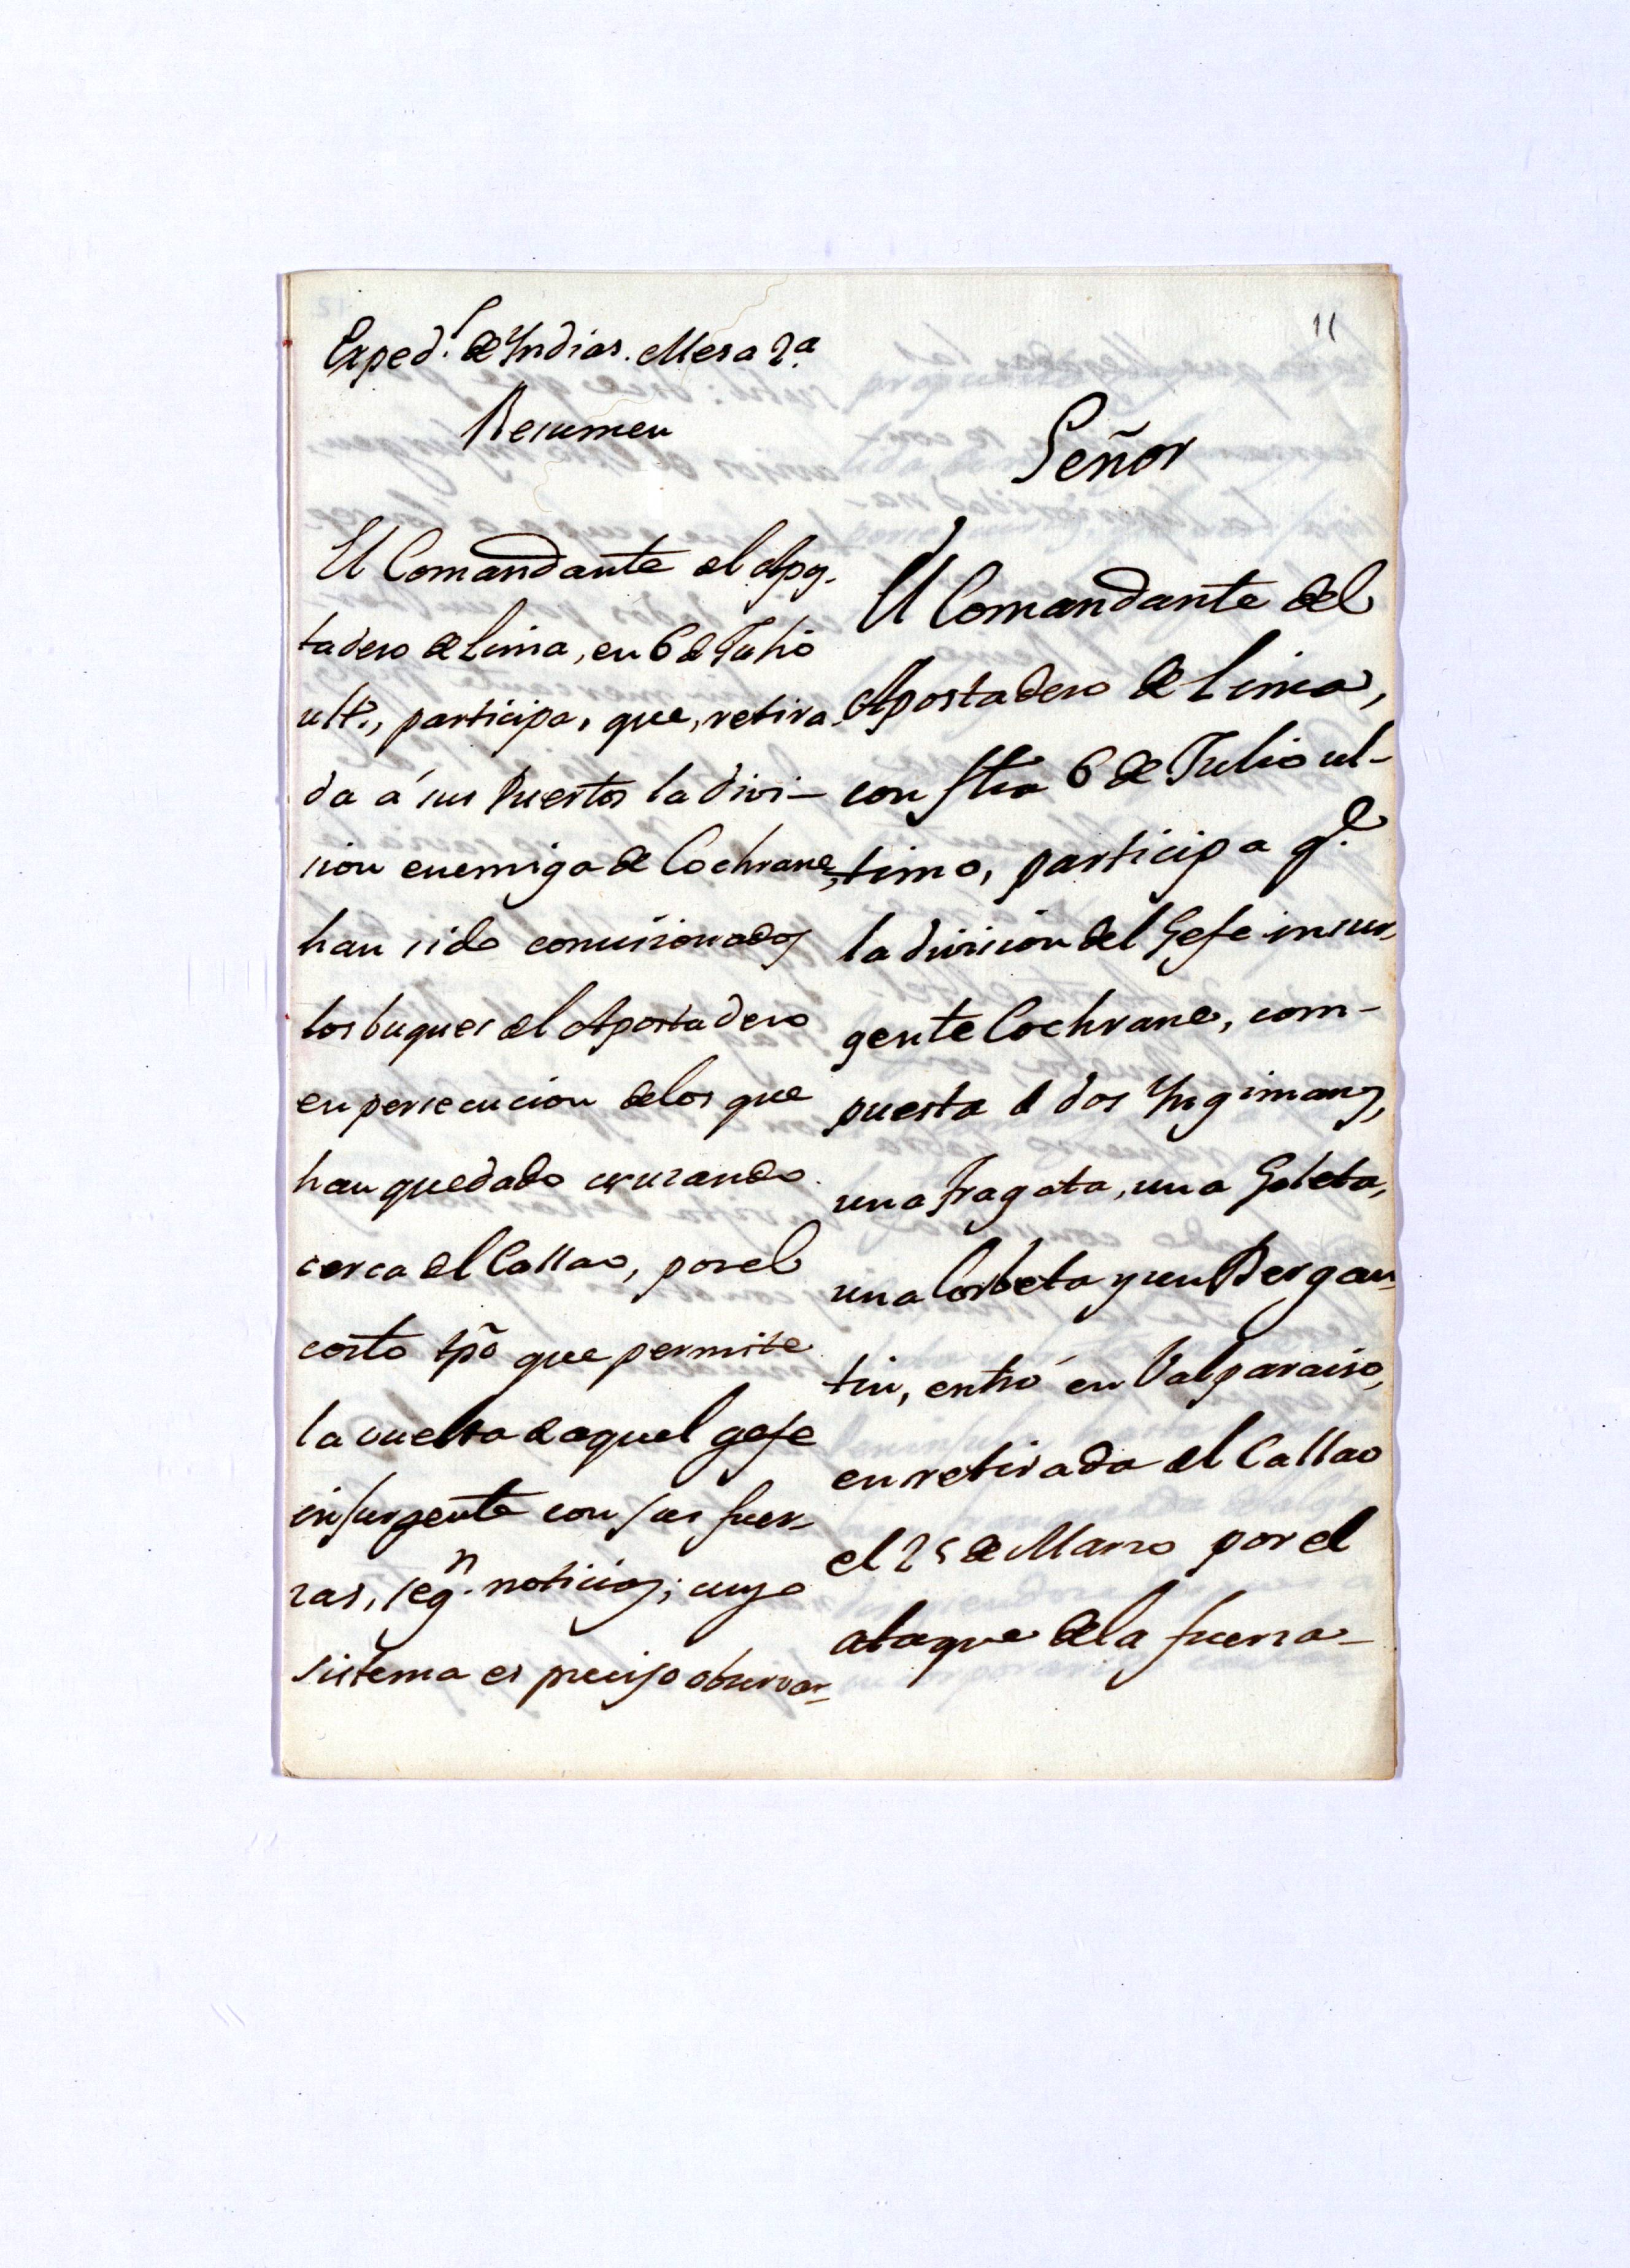 11
Exped.^s de Yndias. Mesa 2.a
Resumen
El Comandante del Apos-
tadero de Lima, en 6 de Julio
ult.o, participa, que, retira-
da á sus Puertos la divi-
sion enemiga de Cochrane,
han sido comisionados
los buques del Apostadero
en persecucion de los que
han quedado cruzando
cerca del Callao, por el
corto tpõ que permite
la vuelta de aquel gefe
insurgente con sus fuer-
zas, seg.n noticias; cuyo
sistema es preciso observar
Señor
El Comandante del
Apostadero de Lima,
con fha 6 de Julio ul-
timo, participa q.e
la division del Gefe insur-
gente Cochrane, com-
puesta de dos Yngimans,
una fragata, una Goleta,
una Corbeta y un Bergan-
tin, entró en Valparaiso,
en retirada del Callao
el 25 de Marzo por el
ataque de la fuerza